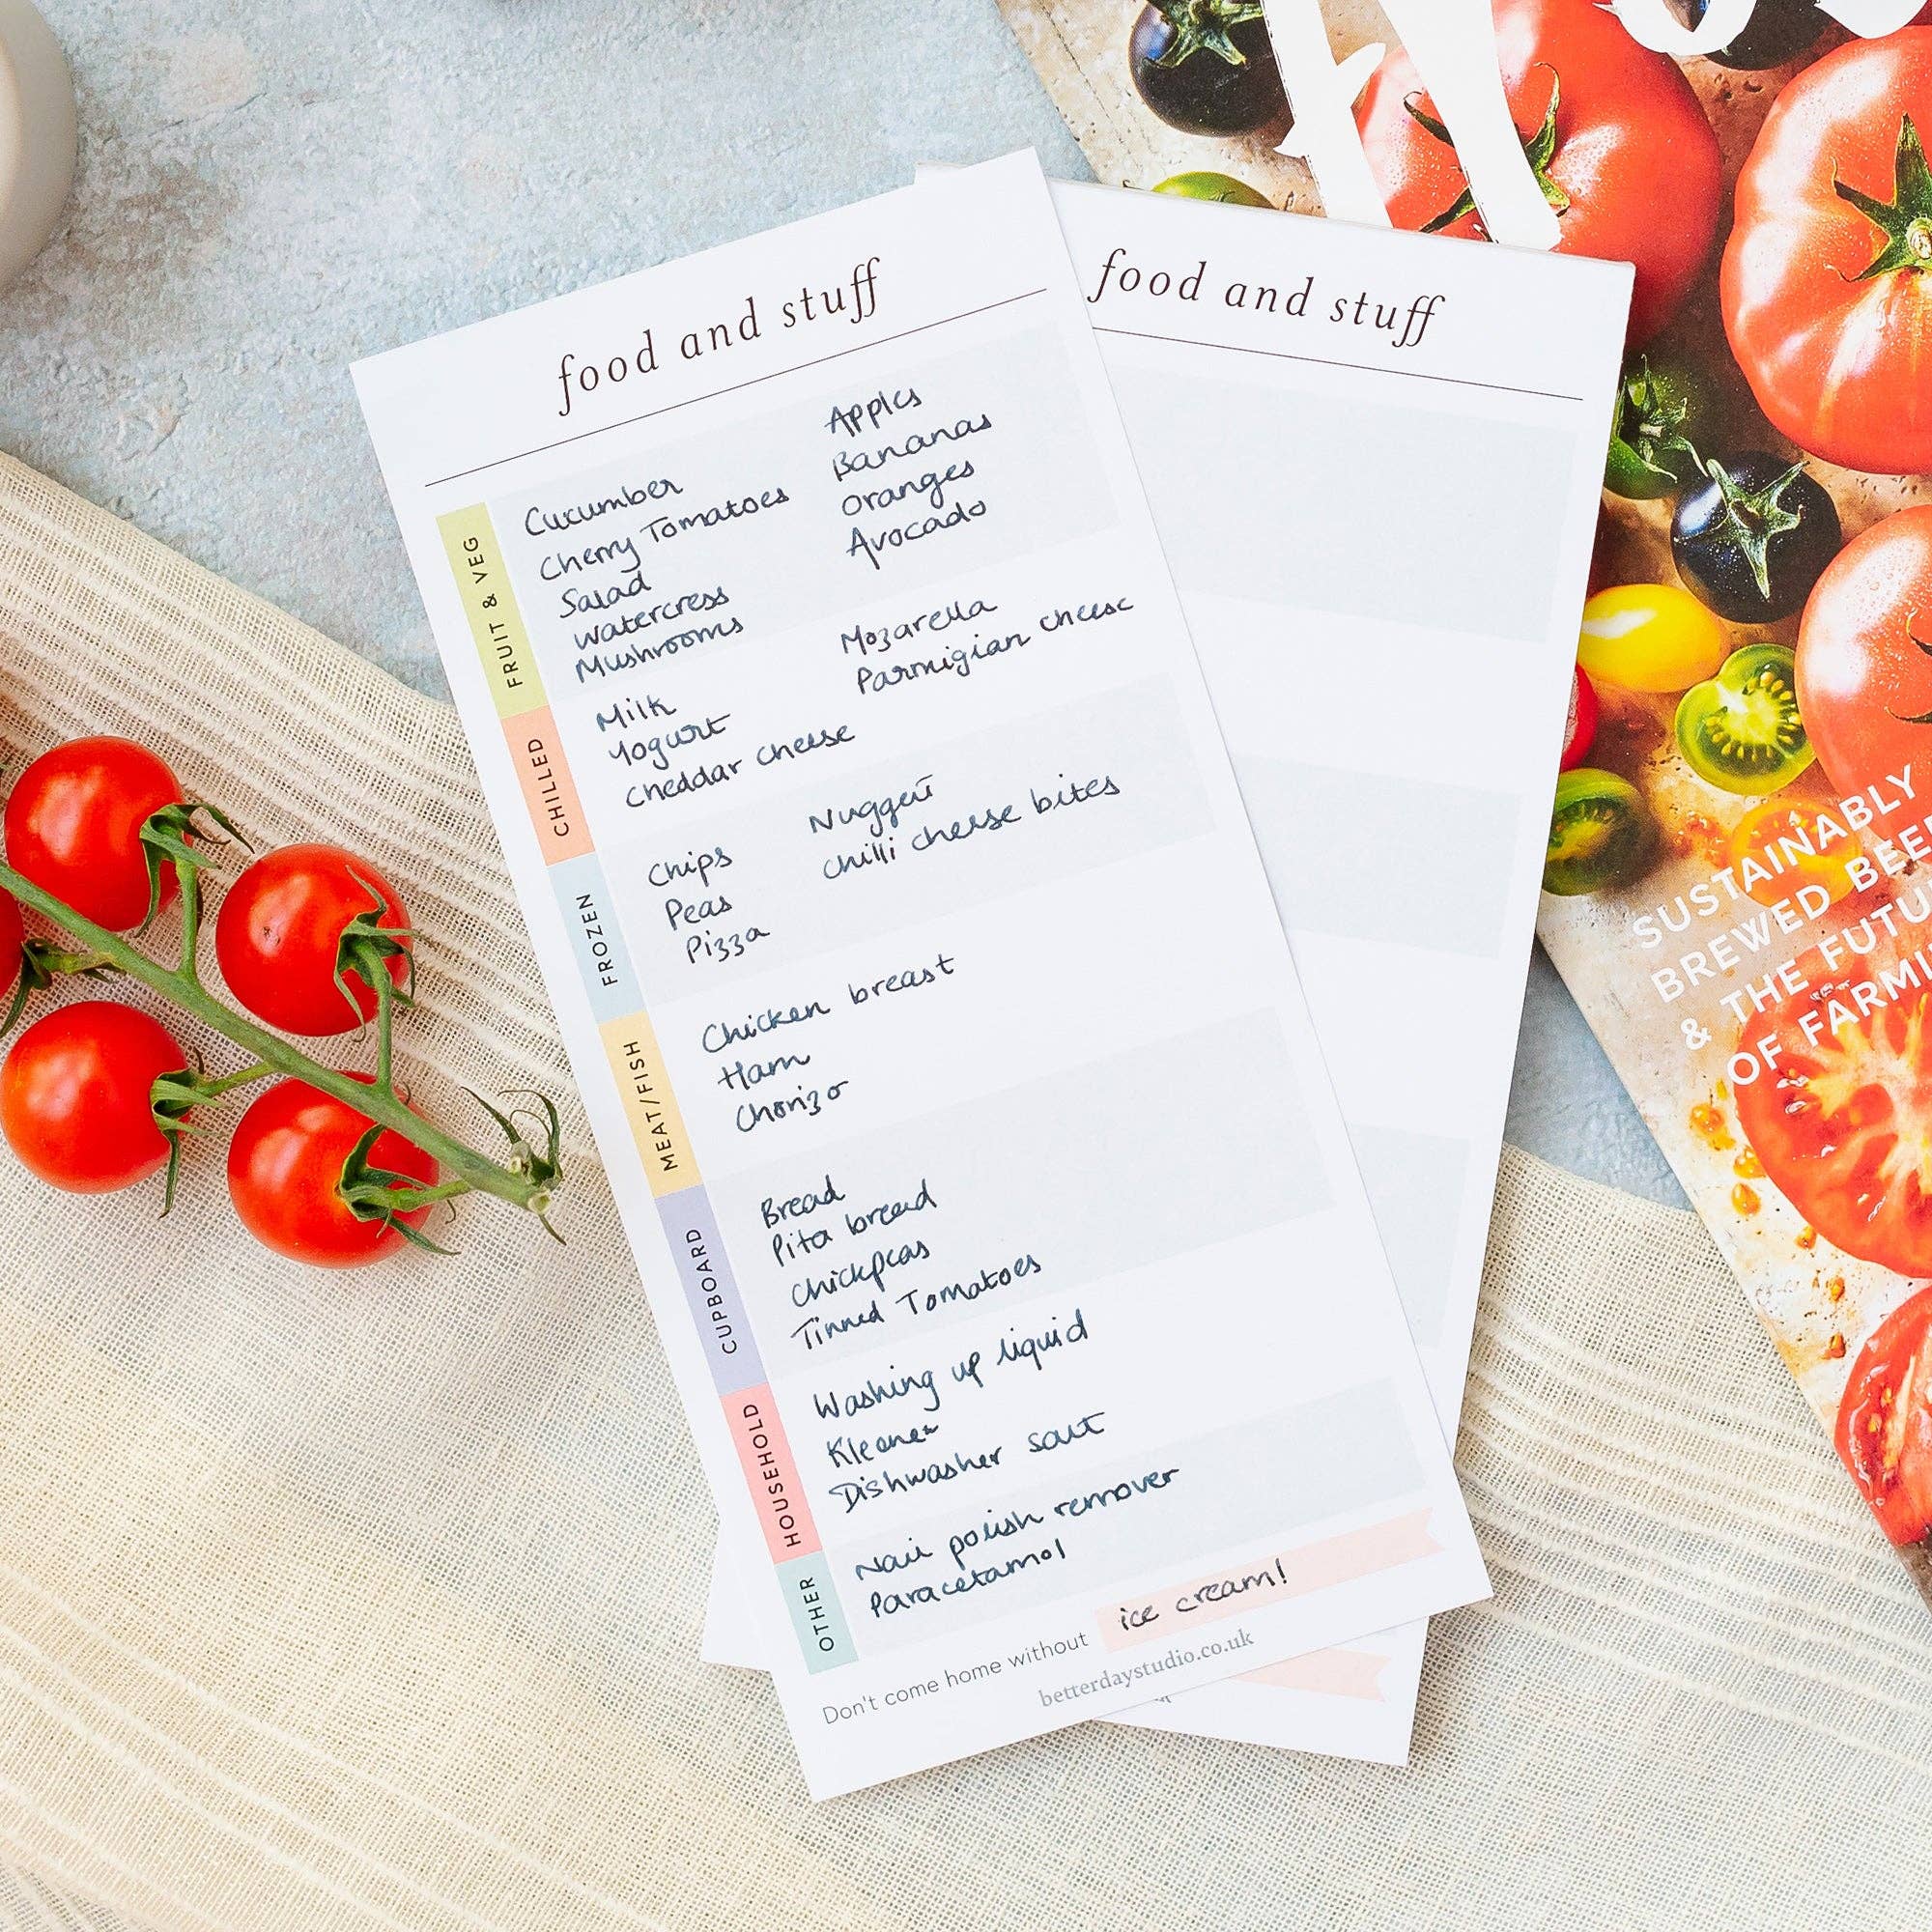 food and stuff
FRUIT & VEG
Cucumber
Cherry Tomatoes
Salad
Watercress
Mushrooms
Apples
Bananas
Oranges
Avocado
CHILLED
Milk
Yogurt
Cheddar cheese
Mozarella
Parmigian cheese
FROZEN
Chips
Peas
Pizza
chilli cheese bites
MEAT/FISH
Chicken breast
Ham
Chorizo
CUPBOARD
Bread
Pita bread
Chickpeas
Tinned Tomatoes
HOUSEHOLD
Washing up liquid
Dishwasher salt
OTHER
Nail polish remover
Paracetamol
Don't come home without ice cream!
betterdaystudio.co.uk
food and stuff
SUSTAINABLY
BREWED
& THE
OF